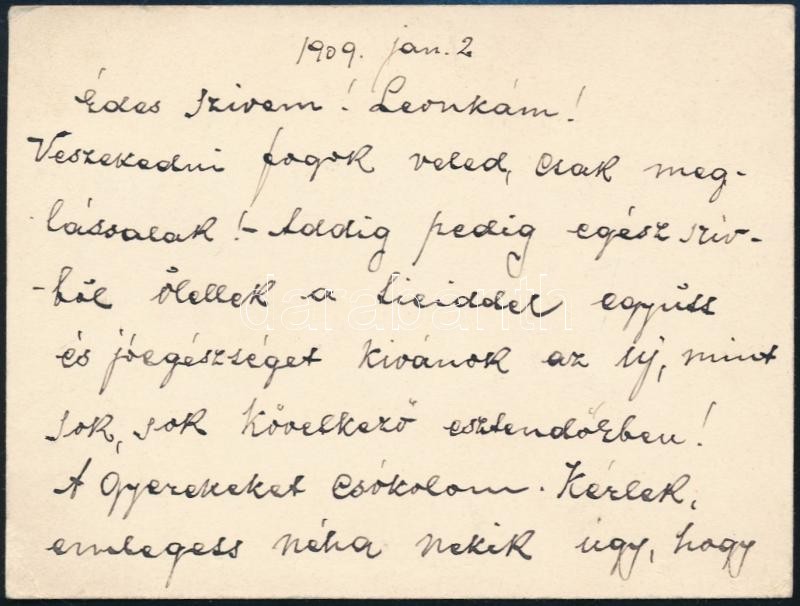 1909. jan. 2
Édes Szivem! Leonkám!
Veszekedni fogok veled, csak meg-
lássalak! - Addig pedig egész sziv-
-ből ölellek a tieiddel együtt
és jóegészséget kivánok az új, mint
sok, sok következő esztendőkben!
A gyerekeket csókolom. Kérlek,
emlegess néha nekik úgy, hogy
darabanth